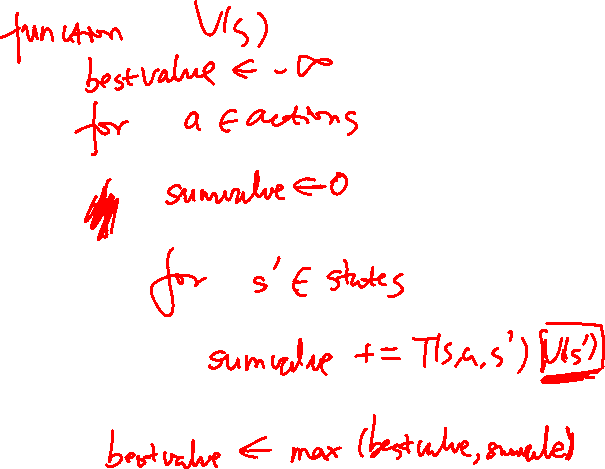 function V(s)
bestvalue ← -∞
for a ∈ actions
sumvalue ← 0
for s' ∈ states
sumvalue += T(s,a,s') V(s')
bestvalue ← max (bestvalue, sumvalue)